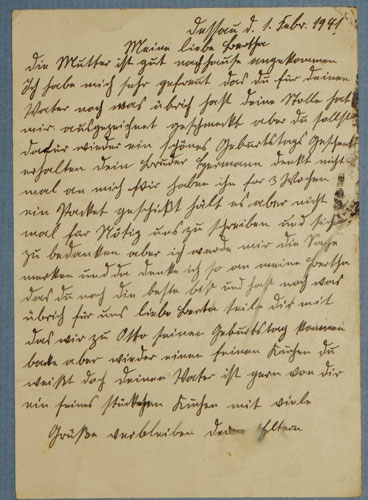 Dessau d. 1. Febr. 1941
Meine liebe Bertha
die Mutter ist gut nachhause angekommen
Ich habe mich sehr gefraut das du für deinen
Vater noch was übrich hast deine Stolle hat
mir ausgezeichnet geschmeckt aber du sollst
dafür wieder ein schönes Geburtstags Geschenk
erhalten dein Bruder Hermann denkt nicht
mal an mich Wir haben ihn for 3 Wochen
ein Packet geschikt hält es aber nicht
mal für Nötig uns zu schreiben und sich
zu bedanken aber ich werde mir die Sache
merken und da denke ich so an meine Bertha
das du noch die beste bist und hast noch was
übrich für uns liebe Berta teile dir mit
das wir zu Otto seinen Geburtstag kommen
backe aber wieder einen feinen Kuchen du
weißt doch deinen Vater ist gern von dir
ein feines stückchen Kuchen mit viele
Grüße verbleiben deine Eltern